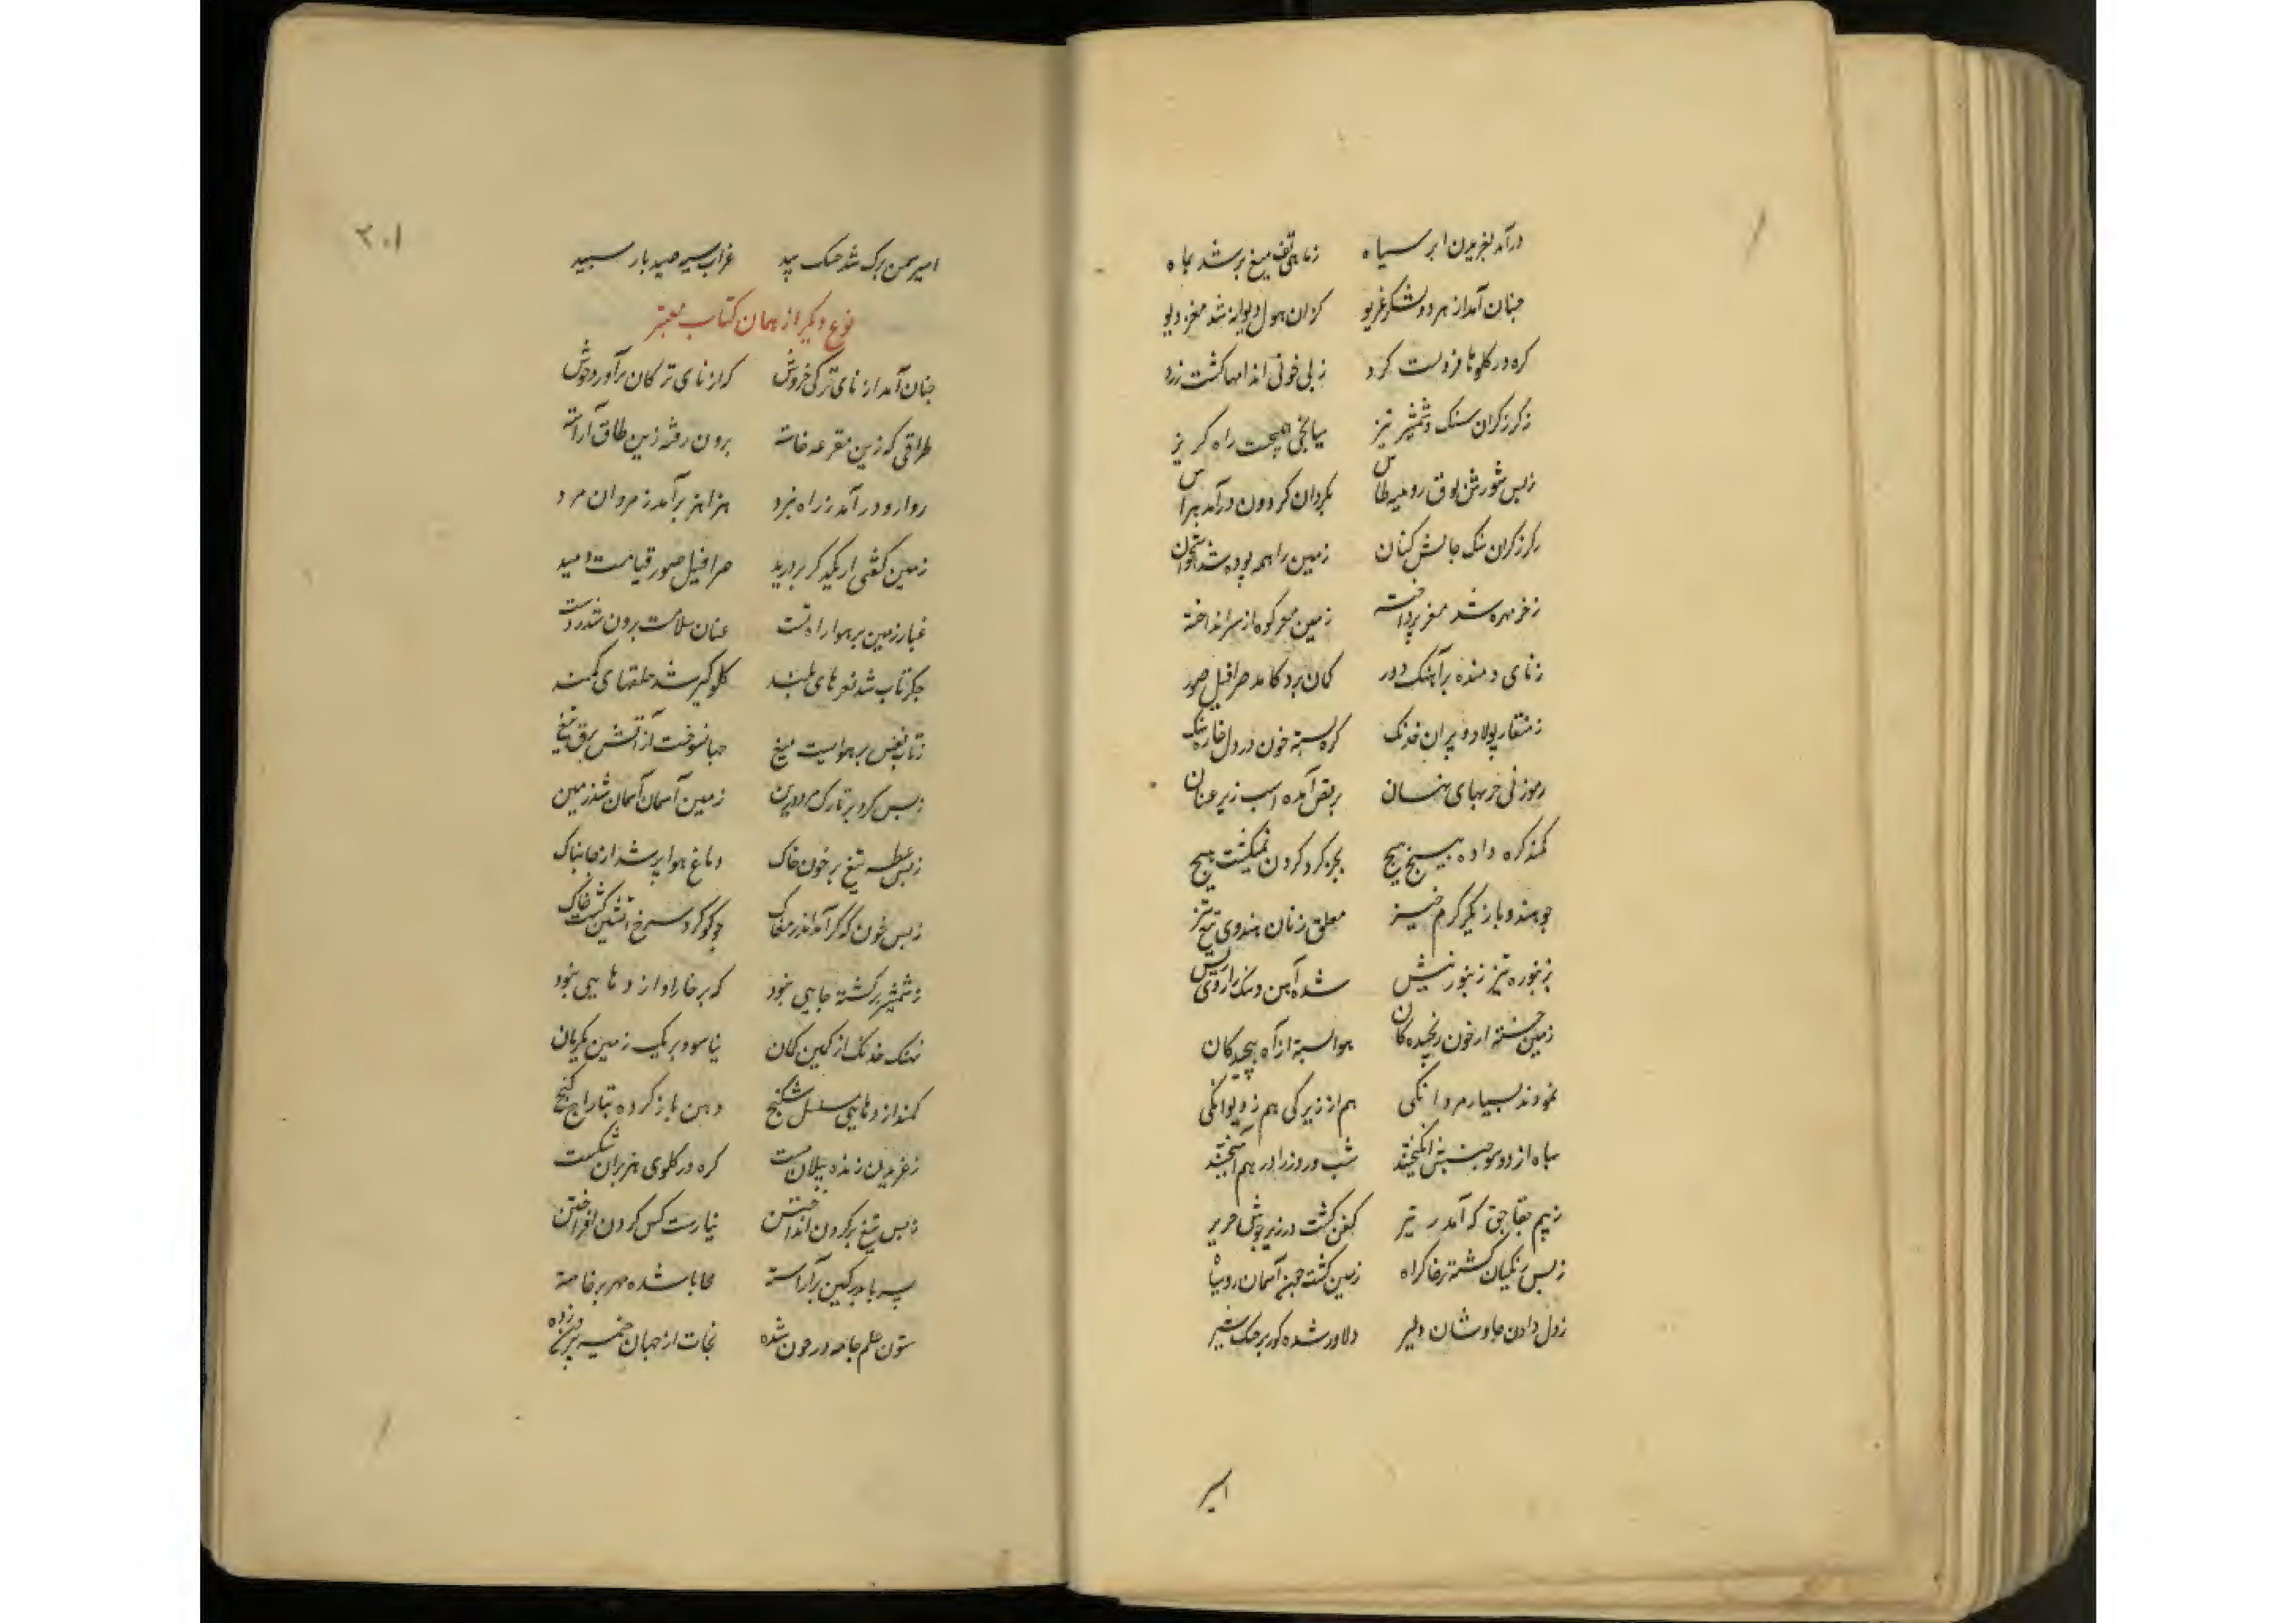 درآمد بغریدن ابر سیاه زماهی تف میغ بر شد بماه
چنان آمد از هر دو لشکر غریو کزان هول دیوانه شد مغز دیو
کره در کلوها فرو بست کرد ز بی خونی اندامها کشت زرد
ز کرز کران سنک و شمشیر تیز میانجی همیجست راه کریز
ز بس شورش بوق رویینه طاس بکردان کردون درآمد هراس
ز کرز کران سنک چالش کنان زمین را همه بوده شد استخوان
ز خر مهره شد مغز پرداخته زمین مهر کوه از سر انداخته
ز نای دمنده برآهنک دور کمان برد کامد صرافیل صور
ز منقار پولاد و پران خدنک کره بسته خون در دل خاره سنک
برقص آمده اسب زیر عنان
کمند کره داده پیچ پیچ بجز کرد کردن نمیکشت هیچ
چو هندو بازیکر کرم خیز معلق زنان هندوی تیغ تیز
ز زنبوره تیز زنبور نیش شده آهن و سنک را روی ریش
زمین خسته از خون رنجیده کان هوا بسته از آه پیچیدکان
نمودند بسیار مردانکی هم از زیرکی هم ز دیوانکی
سپاه از دو سو جنبش انکیختند شب و روز را در هم آمیختند
ز بیم چقاچق که آمد ز تیر کفن کشت در زیر جوشن حریر
ز بس زنکیان کشته بر خاک راه زمین کشت چون آسمان رو سیاه
ز دل دادن چاوشان دلیر دلاور شده کور بر جنک شیر
اسیر
۲۰۱
اسیر سمن برک شد مشک بید غراب سیه صید باز سپید
نوع دیکر از همان کتاب معتبر
چنان آمد از نای ترکی خروش کز از نای ترکان برآورد جوش
طراقی که زین مقرعه خاسته برون رفته زین طاق آراسته
روارو درآمد ز راه نبرد هزاهز برآمد ز مردان مرد
زمین کفتی از یکدکر بردرید صرافیل صور قیامت دمید
غبار زمین بر هوا راه بست عنان سلامت برون شد ز دست
جکرتاب شد نعره های بلند کلوکیر شد حلقهای کمند
ز تاب نفس بر هوا بست میغ جهان سوخت از آتش برق تیغ
ز بس کرد بر تارک و ترک و زین زمین آسمان آسمان شد زمین
ز بس عطسه تیغ بر خون خاک دماغ هوا پر شد از جان پاک
ز بس خون که کرد آمد اندر مغاک چو کوکرد سرخ آتشین کشت خاک
ز شمشیر بر کشته جایی نبود که بر غار او اژدهایی نبود
نهنک خدنک از کمین کمان نیاسود بر یک زمین یکزمان
کمند اژدهایی مسلسل شکنج دهن باز کرده بتاراج کنج
ز غریدن زنده پیلان مست کره در کلوی هزبران شکست
ز بس تیغ بر کردن انداختن نیارست کس کردن افراختن
پسر با پدر کین برآراسته محابا شده مهر برخاسته
ستون علم جامه در خون شده نجات از جهان خیمه بیرون زده